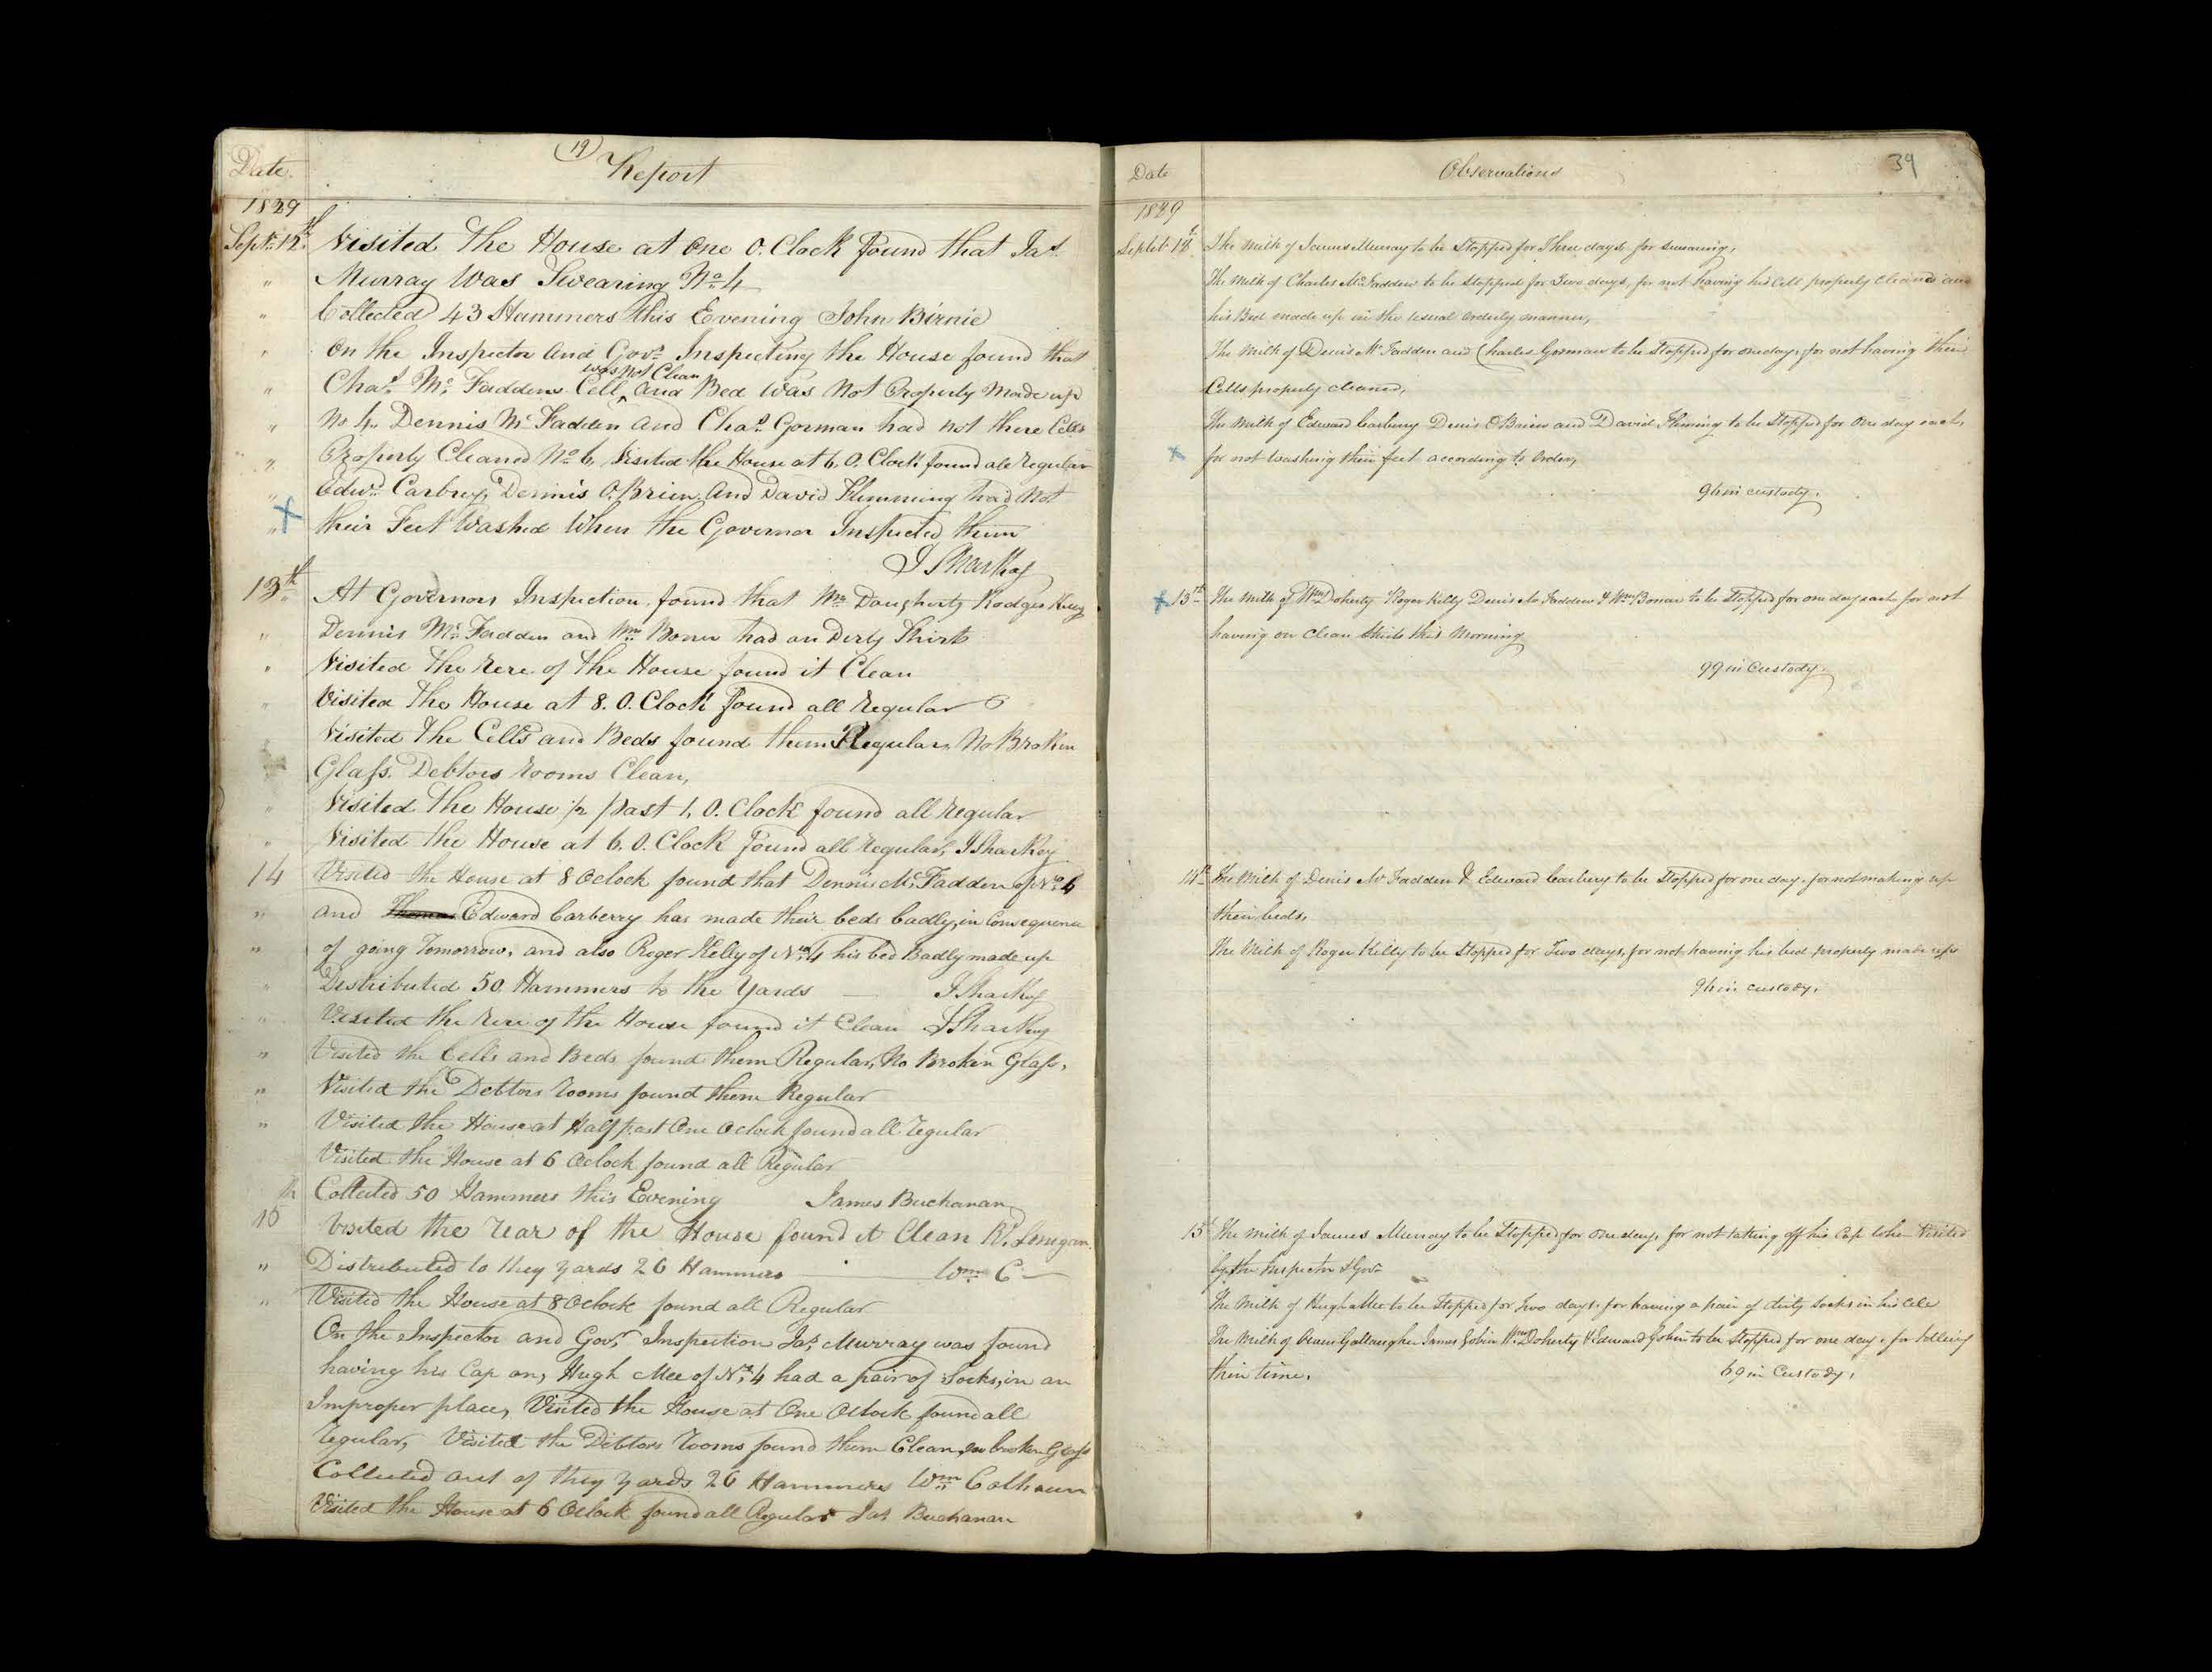 (19)
Date. Report
1829
Septr. 12th Visited the House at One O.Clock found that Jas.
" Murray Was Swearing No. 4
" Collected 43 Hammers this Evening John Birnie
" On the Inspector and Govr. Inspecting the House found that
was not Clean
" Chas. Mc.Faddens Cell, and Bed Was Not Properly Made up
" No 4. Dennis Mc.Fadden and Chas. Gorman had not there Cells
" Properly Cleaned No 6, Visited the House at 6.O.Clock found all regular
" Edwd. Carbrey, Dennis O.Brien and David Flemming had Not
" their Feet Washed When the Governor Inspected them
J Sharkey
13th At Governors Inspection found that Wm. Daugherty Rodger Kelly
" Dennis Mc.Fadden and Wm. Boner had on Derty Shirts
" Visited the rere of the House found it Clean
" Visited the House at 8.O.Clock found all regular
" Visited the Cells and Beds found them Regular, No Broken
Glass. Debtors rooms Clean,
" Visited the House 1/2 past 1,O.Clock found all regular
" Visited the House at 6.O.Clock found all regular, J Sharkey
14 Visited the House at 8 OClock found that Dennis Mc.Fadden of No. 4
" and Thomas Edward Carberry has made their beds badly, in Consequence
" of going Tomorrow, and also Roger Kelly of No. 4 his bed Badly made up
" Distributed 50 Hammers to the Yards — J Sharkey
" Visited the rere of the House found it Clean J Sharkey
" Visited the Cells and Beds found them Regular, No Broken Glass,
" Visited the Debtors rooms found them Regular
" Visited the House at Half past One OClock found all regular
Visited the House at 6 OClock found all Regular
Collected 50 Hammers this Evening James Buchanan
15th Visited the rear of the House found it Clean
" Distributed to they yards 26 Hammers — Wm C —
" Visited the House at 8 OClock found all Regular
On the Inspector and Govr. Inspection Jas. Murray was found
having his Cap on, Hugh Mee of No. 4 had a pair of Socks, in an
Improper place, Visited the House at One OClock found all
regular, Visited the Debtors rooms found them Clean, no broken Glass
Collected out of they yards 26 Hammers Wm Colhoun
Visited the House at 6 OClock found all Regular Jas. Buchanan
39
Date Observations
1829
Septr. 12 The milk of James Murray to be Stopped for Three days, for swearing,
The Milk of Charles Mc.Fadden to be Stopped for Two days, for not having his Cell properly cleaned and
his Bed made up in the usual orderly manner,
The Milk of Denis McFadden and Charles Gorman to be Stopped for one day, for not having their
Cells properly cleaned,
The Milk of Edward Carbury Denis OBrien and David Fleming to be Stopped for One day each,
for not washing their feet according to Order,
96 in custody.
13th The Milk of Wm Doherty Roger Kelly Denis McFadden & Wm Bonar to be Stopped for one day each for not
having on Clean Shirts this Morning
99 in Custody.
14th The Milk of Denis McFadden & Edward Carbury to be Stopped for one day. for not making up
their beds,
The Milk of Roger Kelly to be Stopped for Two days, for not having his bed properly made up
96 in custody.
15 The milk of James Murray to be Stopped for one day, for not taking off his Cap when Visited
by the Inspector & Govr.
The Milk of Hugh Mee to be Stopped for Two days, for having a pair of dirty socks in his Cell
The Milk of Owen Gallaugher James Wm Doherty & Edward to be Stopped for one day, for Idleing
their time.
69 in Custody.